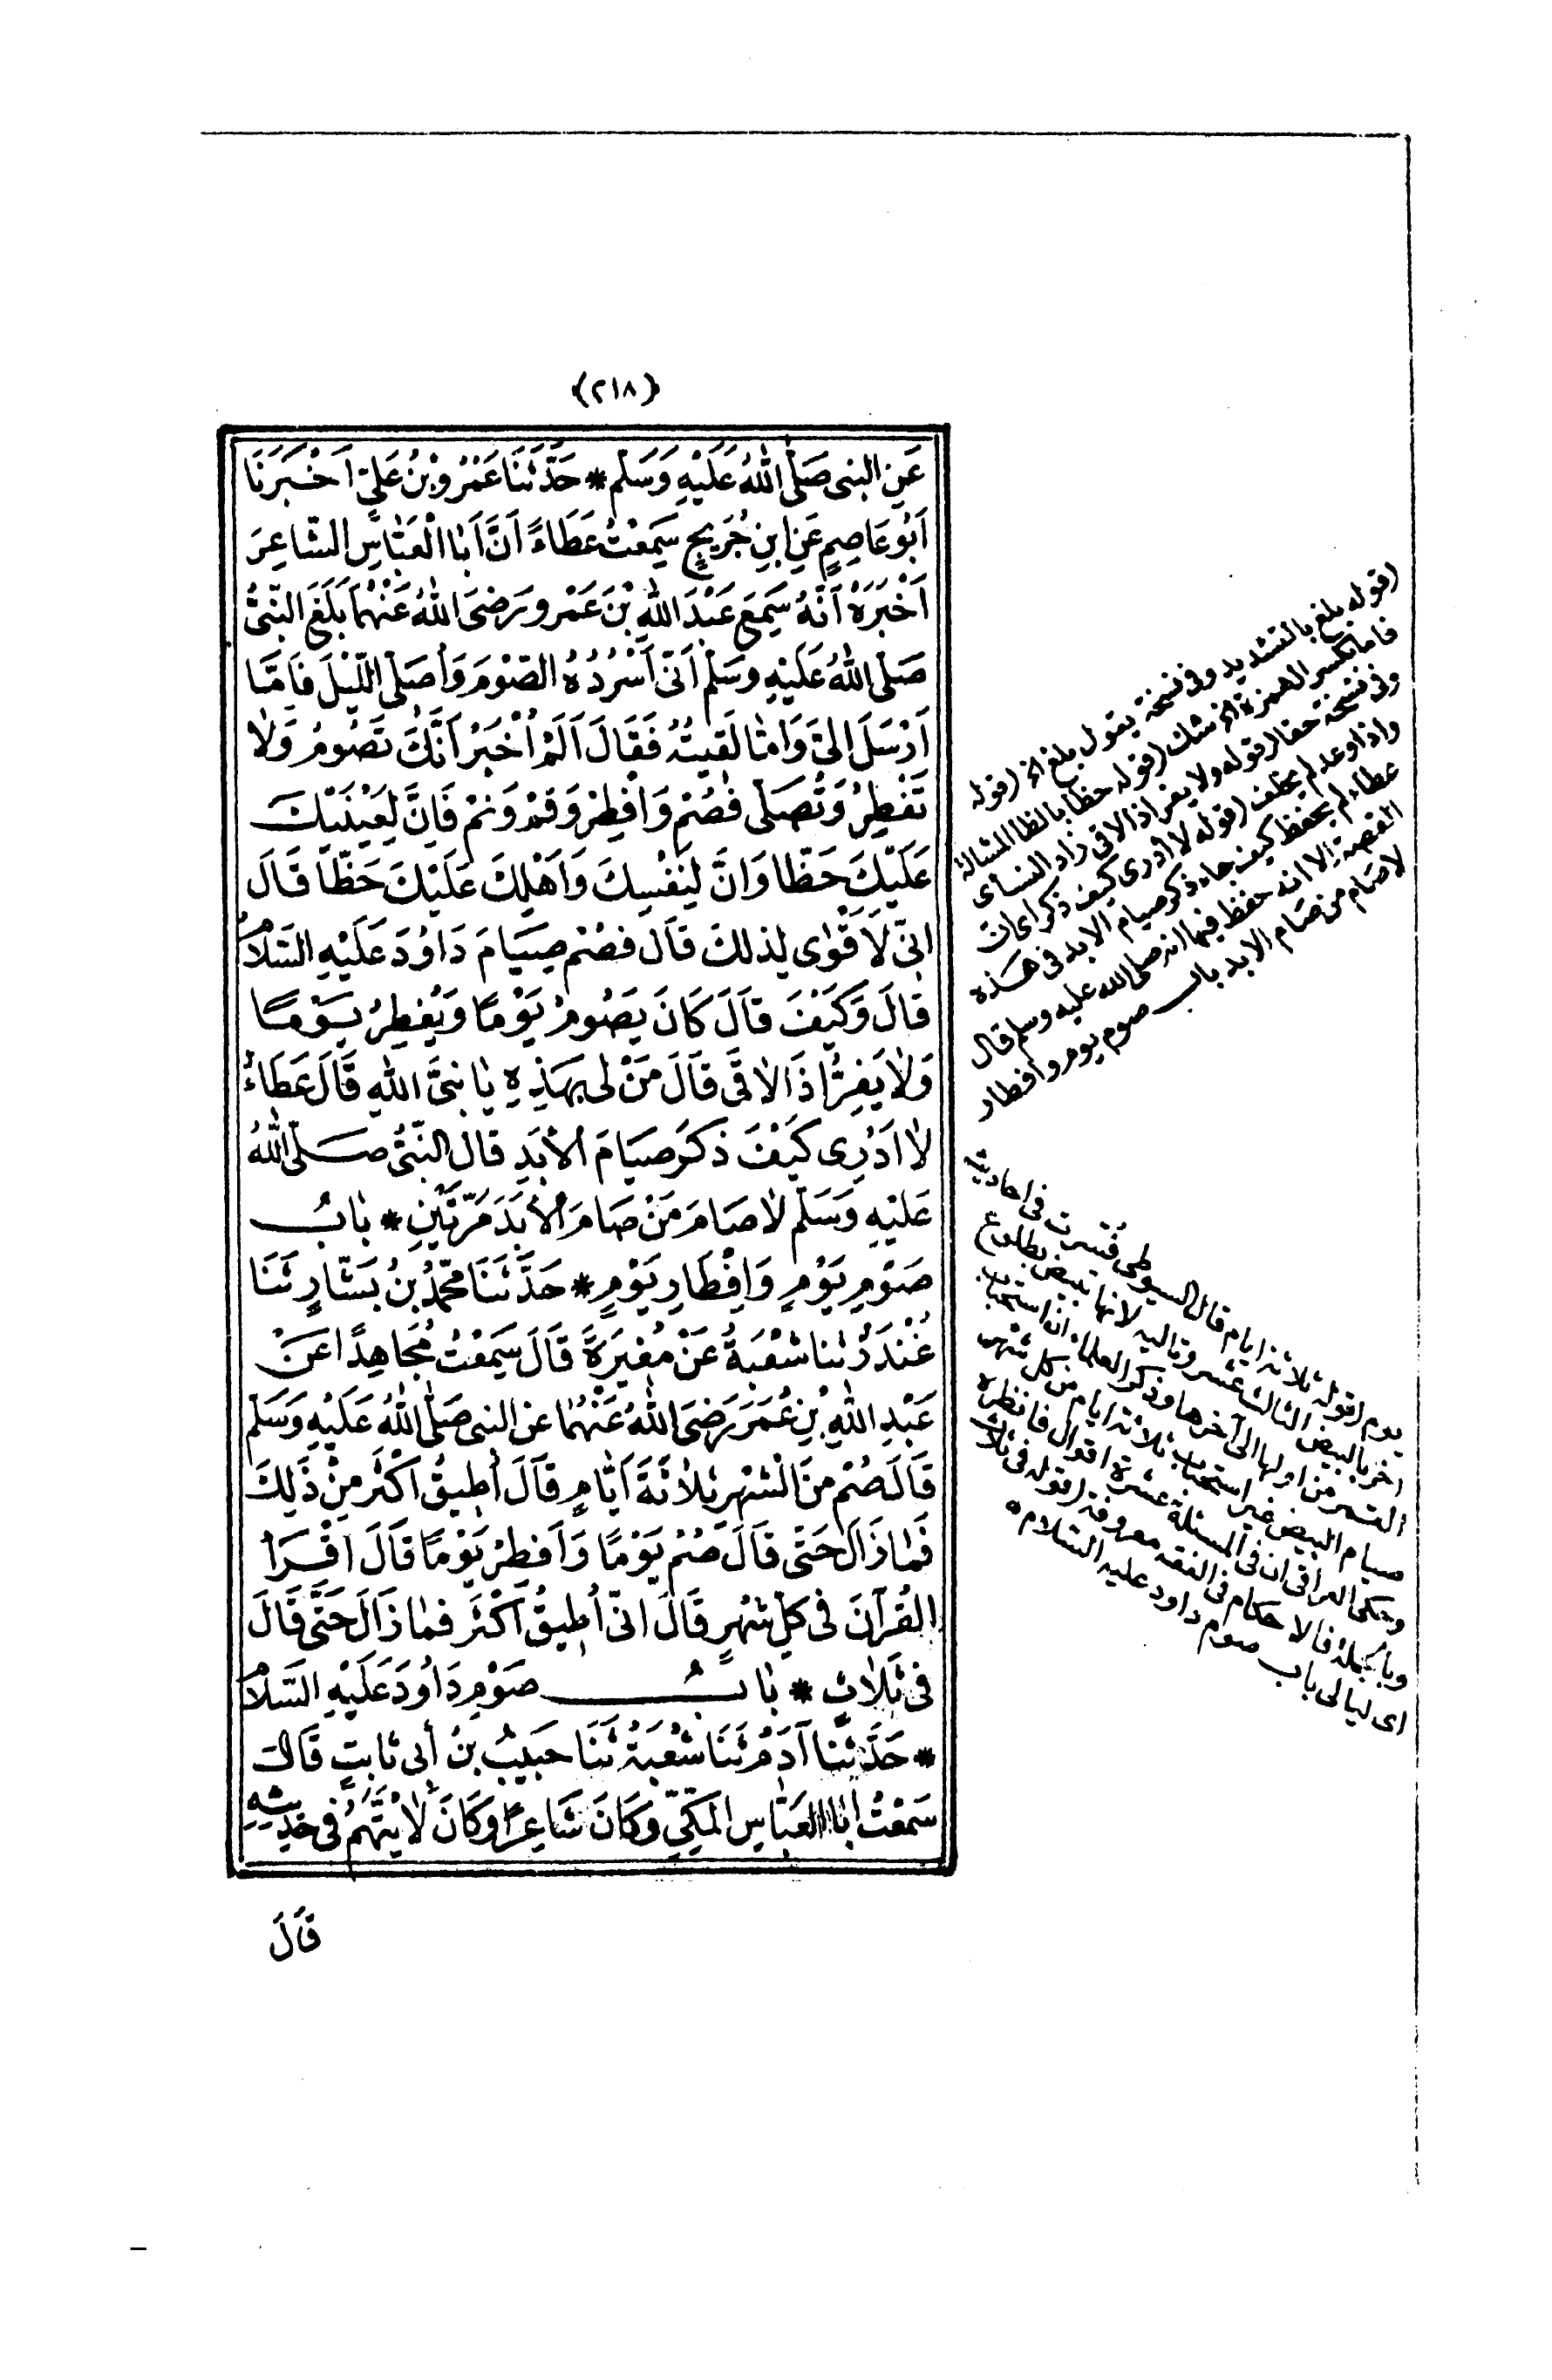 (٢١٨)
عَنِ النبى صَلَّى اللهُ عَلَيْهِ وَسَلَّم * حَدَّثَنَا عَمْرُو بْنُ عَلِىّ اَخْبَرَنَا
اَبُو عَاصِمٍ عَنِ ابنِ جُرَيجٍ سَمِعْتُ عَطَاءً اَنَّ اَبَا الْعَبَّاسِ الشّاعِرَ
اَخْبَرَهُ اَنَّهُ سَمِعَ عَبْدَ اللهِ بْنَ عَمْرٍو رَضِىَ اللهُ عَنْهُمَا بَلَغَ النَّبِىَّ
صَلَّى اللهُ عَلَيْهِ وسَلَّم اَنّى اَسْرُدُهُ الصّوْمَ وَاُصَلِّى اللَّيْلَ فَاِمَّا
اَرْسَلَ اِلَىَّ وَامّا لَقِيتُهُ فَقَالَ اَلَمْ اُخْبَرْ اَنَّكَ تَصُومُ وَلاَ
تَفْطِرُ وَتُصَلّى فصُمْ وَاَفْطِرْ وَقُمْ وَنَمْ فَاِنَّ لِعَيْنَيْكَ
عَلَيْكَ حَظّا وَاِنَّ لِنَفْسِكَ وَاَهْلِكَ عَلَيْكَ حَظّا قَالَ
اِنّى لَاَقْوٰى لِذلكَ قَالَ فصُمْ صِيَامَ دَاوُدَ عَلَيْهِ السَّلاَمُ
قالَ وَكَيْفَ قالَ كَانَ يَصُومُ يَوْمًا وَيُفْطِرُ يَوْمًا
وَلاَ يَفِرُّ اِذَا لاَ قَى قَالَ مَنْ لى بِهَذِهِ يَا نَبِىَّ اللهِ قَالَ عَطَاءٌ
لاَ اَدْرِى كَيْفَ ذَكَرَ صِيَامَ الْأبَدِ قال النَّبِىُّ صَلّى اللهُ
عَلَيْهِ وَسَلّم لاَ صَامَ مَنْ صَامَ الْأبَدَ مَرّتَيْنِ * بابُ
صَوْمِ يَوْمٍ وَاِفْطَارِ يَوْمٍ * حَدَّثَنَا مُحَمَّدُ بنُ بَشّارٍ ثَنَا
غُنْدَرٌ ثنا شُعْبَةُ عَنْ مُغِيَرَةَ قَالَ سَمِعْتُ مُجَاهِدًا عَنْ
عَبْدِ اللهِ بْنِ عُمَرَ رَضِىَ اللهُ عَنْهُمَا عن النبى صَلَّى اللهُ عَلَيْهِ وَسَلّم
قَالَ صُمْ مِنَ الْشَهْرِ ثَلاَثَةَ اَيّامٍ قَالَ اُطِيقُ اَكْثَرَ مِنْ ذَلِكَ
فَمَا زَالَ حَتّى قَالَ صُمْ يَوْمًا وَاَفْطِرْ يَوْمًا قَالَ اقْرَأ
القُرْآنَ فى كلِّ شَهْرٍ قَالَ انّى اُطِيقُ اَكْثَرَ فمَا زَالَ حَتَّى قَالَ
فى ثَلاَثٍ * بابُ صَوْمِ دَاوُدَ عَلَيْهِ السَّلاَمُ
* حَدَّثَنَا آدَمُ ثَنَا شُعْبَةُ ثَنَا حَبِيْبُ بنُ أبِى ثَابِتٍ قَالَ
سَمعْتُ اَبَا العَبّاسِ المَكّىِّ وَكَانَ شَاعِرًا وَكَانَ لاَ يُتَّهَمُ فى حَدِيْثِهِ
قَالَ
(قوله بلغ بالتشديد وفى نسخة يقول بلغ الخ (قوله
فاما بكسر الهمزة الخ شك (قوله حظا بالظا المشالة
وفى نسخة حقا (قوله ولا يفر اذا لاقى زاد النساى
واذا وعد لم يخلف (قوله لا ادرى كيف ذكر اى ان
عطاء لم يحفظ كيف جاء ذكر صيام الابد فى هذه
القصة الا انه حفظ فيها انه صلى الله عليه وسلم قال
لا صام من صام الابد باب صوم يوم وافطار
يوم (قوله ثلاثة ايام قال السيوطى فسرت فى احاديث
اخر بالبيض الثالث عشر وتالييه لانها تبيض بطلوع
القمر من اولها الى آخرها وذكر العلماء ان استحباب
صيام البيض غير استحباب ثلاثة ايام من كل شهر
وحكى العراقى ان فى المسئلة عشرة اقوال فانظره
وبالجملة فالاحكام فى الفقه معروفة (قوله فى ثلاث
اى ليالى باب صوم داود عليه السلام ه